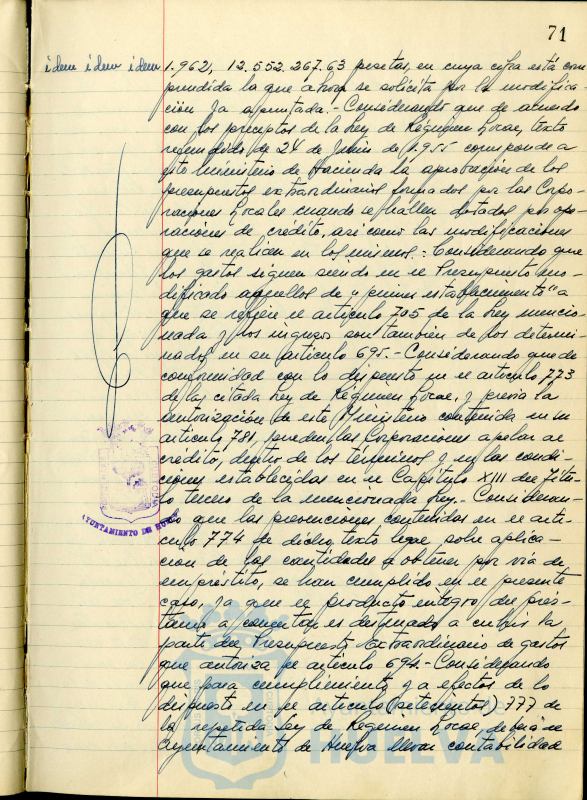 71
idem idem idem 1.962, 12.552.267.63 pesetas, en cuya cifra está com
prendida la que ahora se solicita por la modifica-
ción ya apuntada.- Considerando que de acuerdo
con los preceptos de la Ley de Régimen Local, texto
refundido de 24 de Junio de 1.955 corresponde a
este Ministerio de Hacienda la aprobación de los
presupuestos extraordinarios formados por las Corpo-
raciones Locales cuando se hallen dotados por ope-
raciones de crédito, así como las modificaciones
que se realicen en los mismos.- Considerando que
los gastos siguen siendo en el Presupuesto mo-
dificado aquellos de "primer establecimiento" a
que se refiere el artículo 705 de la Ley mencio-
nada y los ingresos son también de los determi-
nados en su artículo 695.- Considerando que de
conformidad con lo dispuesto en el artículo 773
de la citada Ley de Régimen Local, y previa la
autorización de este Ministerio contenida en su
artículo 781, pueden las Corporaciones apelar al
crédito, dentro de los términos y en las condi-
ciones establecidas en el Capítulo XIII del Títu-
lo tercero de la mencionada Ley.- Consideran-
do que las prevenciones contenidas en el artí-
culo 774 de dicho texto legal sobre aplica-
ción de las cantidades a obtener por vía de
empréstito, se han cumplido en el presente
caso, ya que el producto íntegro del prés-
tamo a concertar es destinado a cubrir la
parte del Presupuesto Extraordinario de gastos
que autoriza el artículo 694.- Considerando
que para cumplimiento y a efectos de lo
dispuesto en el artículo (setecientos) 777 de
la repetida Ley de Régimen Local, deberá el
Ayuntamiento de Huelva llevar contabilidad
AYUNTAMIENTO DE HUELVA
HUELVA